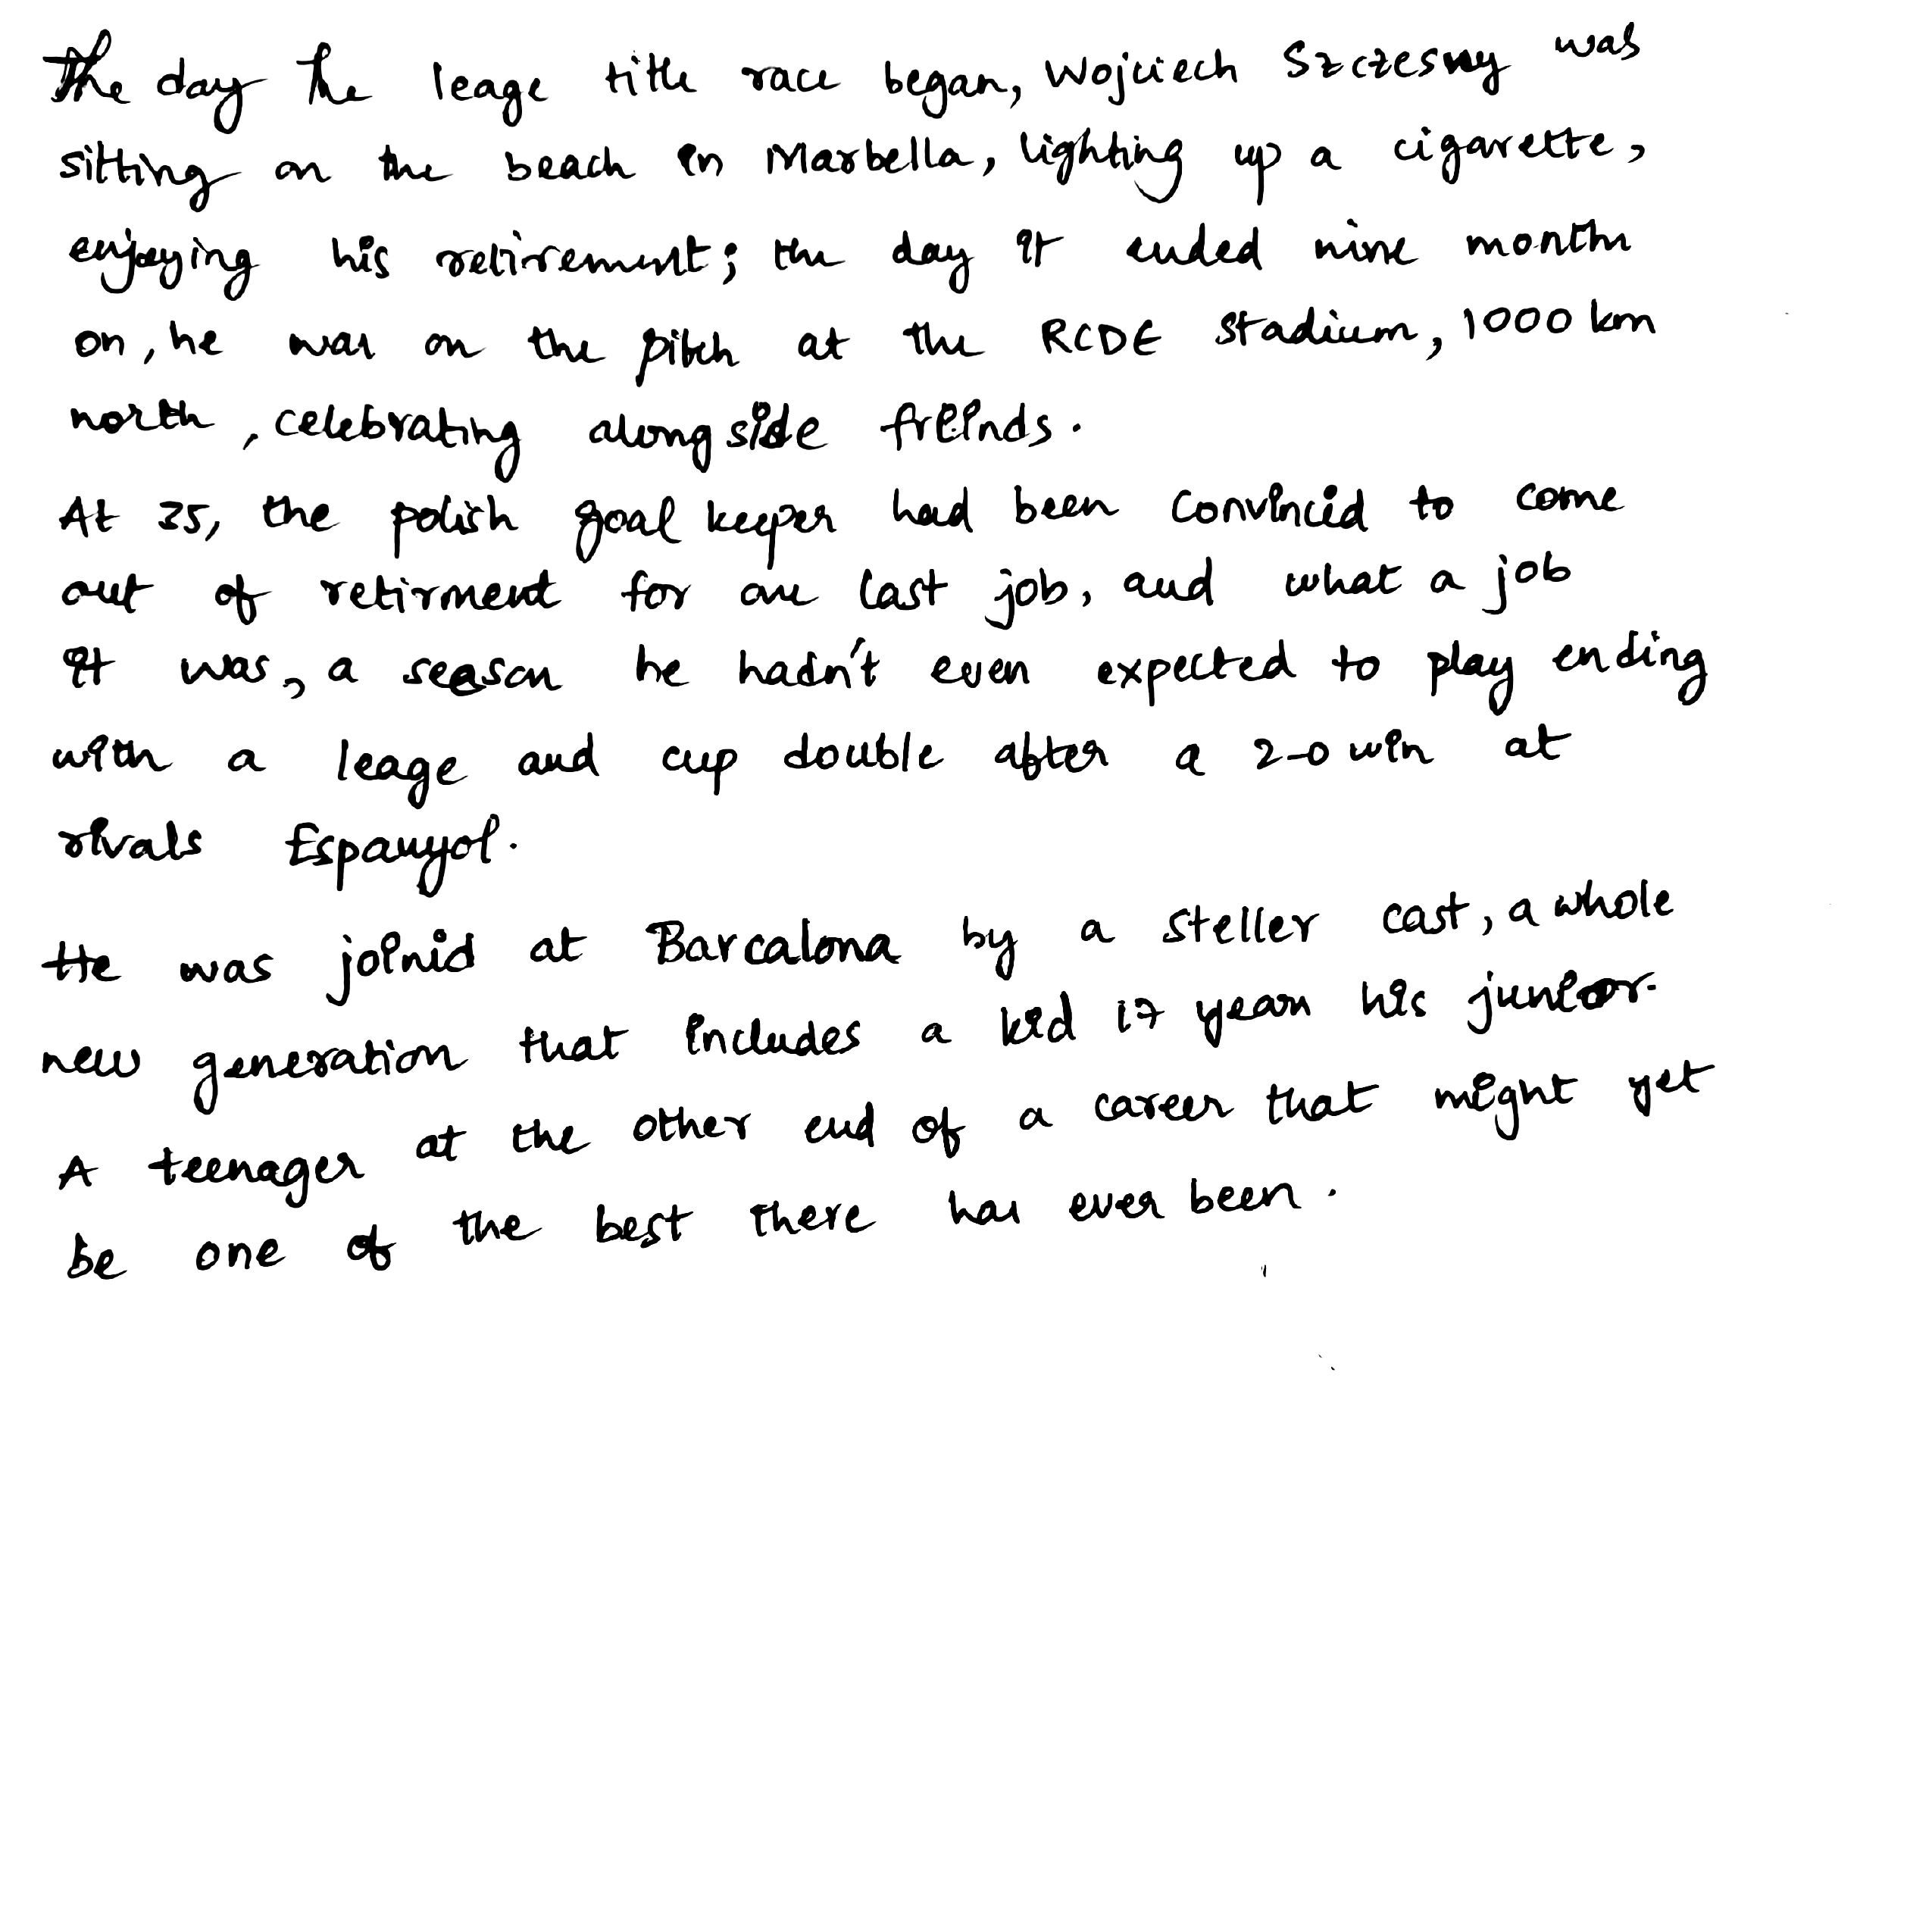 The day the leage title race began, Wojciech Szczesny was
sitting on the beach in Marbella, lighting up a cigarette,
enjoying his retirement; the day it ended nine months
on, he was on the pitch at the RCDE stadium, 1000 km
north, celebrating alongside freinds.
At 35, the polish goal keeper had been convincid to come
out of retirment for one last job, and what a job
it was, a season he hadn't even expected to play ending
with a leage and cup double after a 2-0 win at
rivals Espanyol.
He was joinid at Barcalona by a steller cast, a whole
new generation that includes a kid 17 years his junior.
A teenager at the other end of a career that might yet
be one of the best there has ever been.